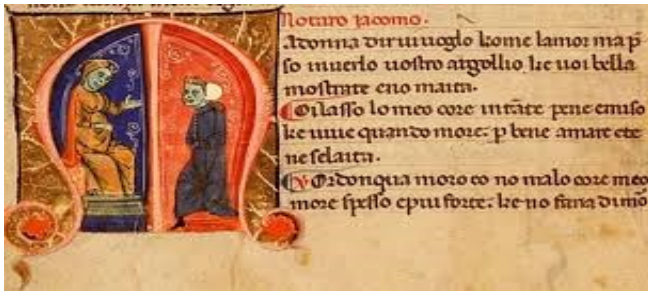 Notaro Jacomo.
Madonna dir uiuoglo kome lamor map̃
so inuerso uostro argollio. ke uoi bella
mostrate eno maita.
Oilasso lo meo core intãte pene emiso
ke uiue quando more. p bene amare ete
neselaita.
Ordonqua moro eo no malo core meo
more spesso epiu forte. ke no faria dimo